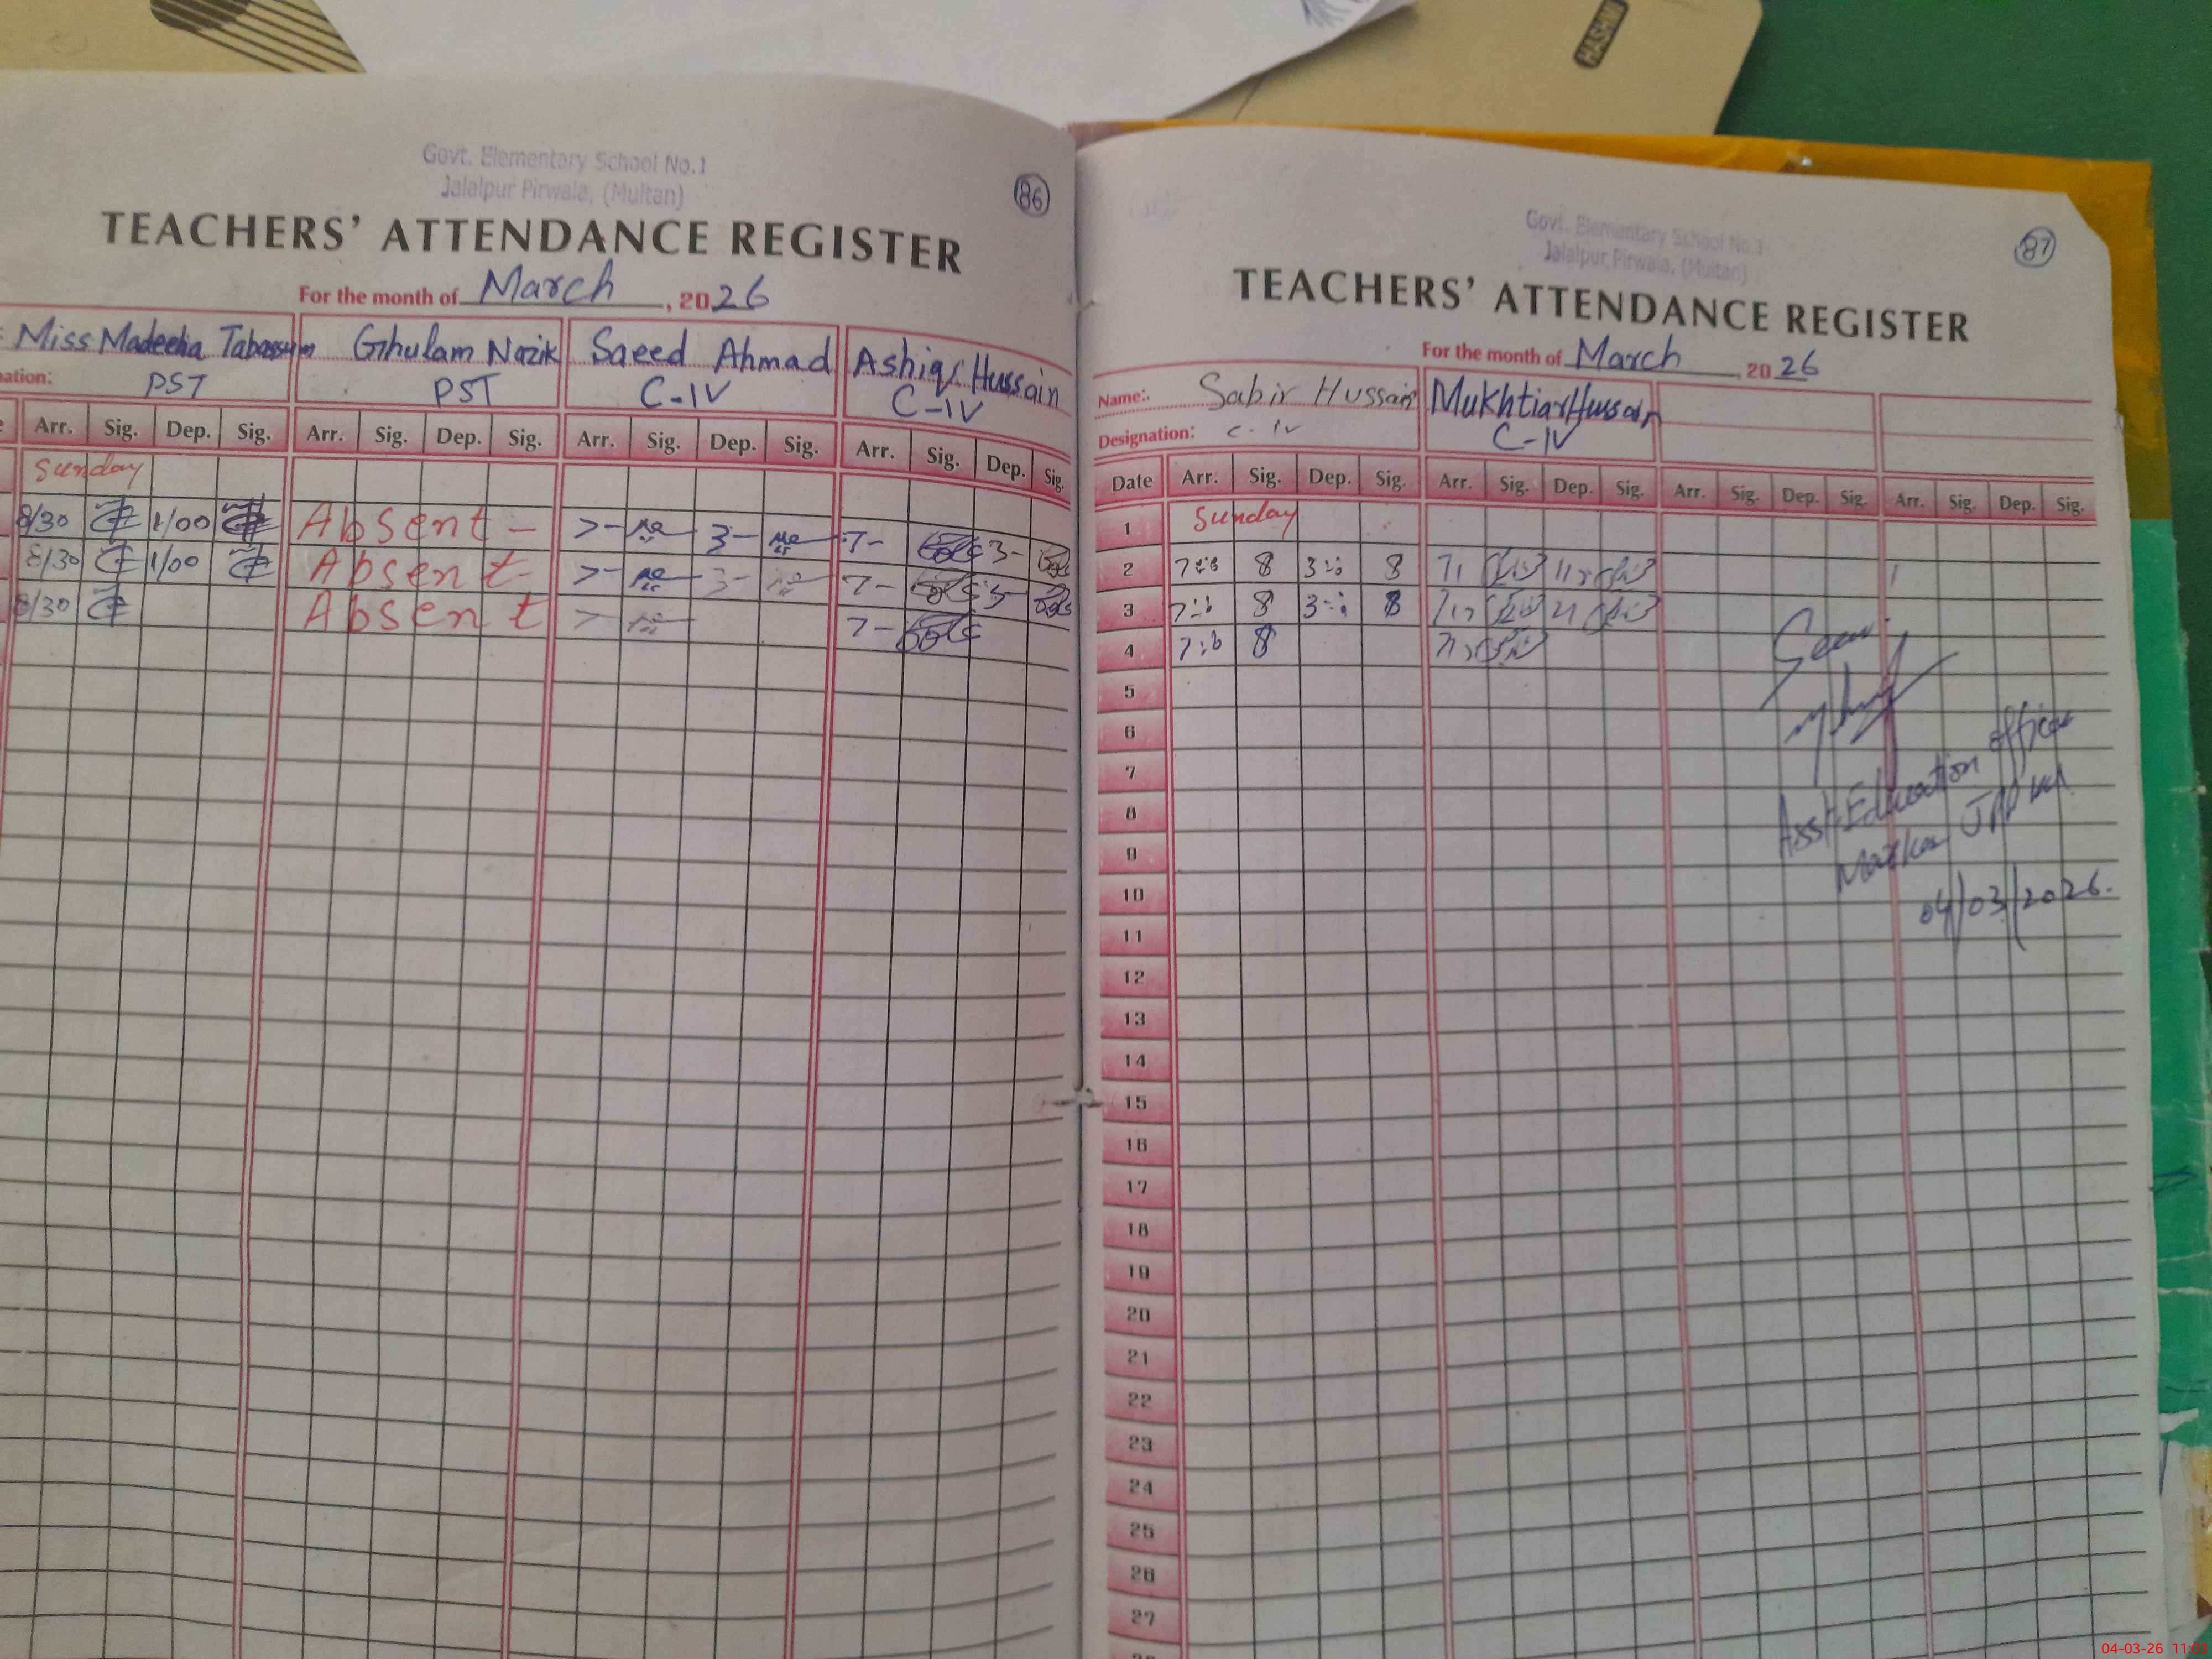 HASHMI
Govt. Elementary School No.1
Jalalpur Pirwala, (Multan)
86
TEACHERS' ATTENDANCE REGISTER
For the month of March, 2026
Miss Madeeha Tabassum Ghulam Nazik Saeed Ahmad Ashiq Hussain
ation: PST PST C-IV C-IV
Arr. Sig. Dep. Sig. Arr. Sig. Dep. Sig. Arr. Sig. Dep. Sig. Arr. Sig. Dep. Sig.
Sunday
8/30 1/00 Absent - 7- 3- 7- 3-
8/30 1/00 Absent - 7- 3- 7- 3-
8/30 Absent 7- 7-
Govt. Elementary School No.1
Jalalpur Pirwala, (Multan)
87
TEACHERS' ATTENDANCE REGISTER
For the month of March, 2026
Name: Sabir Hussain Mukhtiar Hussain
Designation: C-IV C-IV
Date Arr. Sig. Dep. Sig. Arr. Sig. Dep. Sig. Arr. Sig. Dep. Sig. Arr. Sig. Dep. Sig.
1 Sunday
2
3
4
5
6
7
8
9
10
11
12
13
14
15
16
17
18
19
20
21
22
23
24
25
26
27
Seen
Asst. Education Officer
Markaz JPP
04/03/2026.
04-03-26 11:03